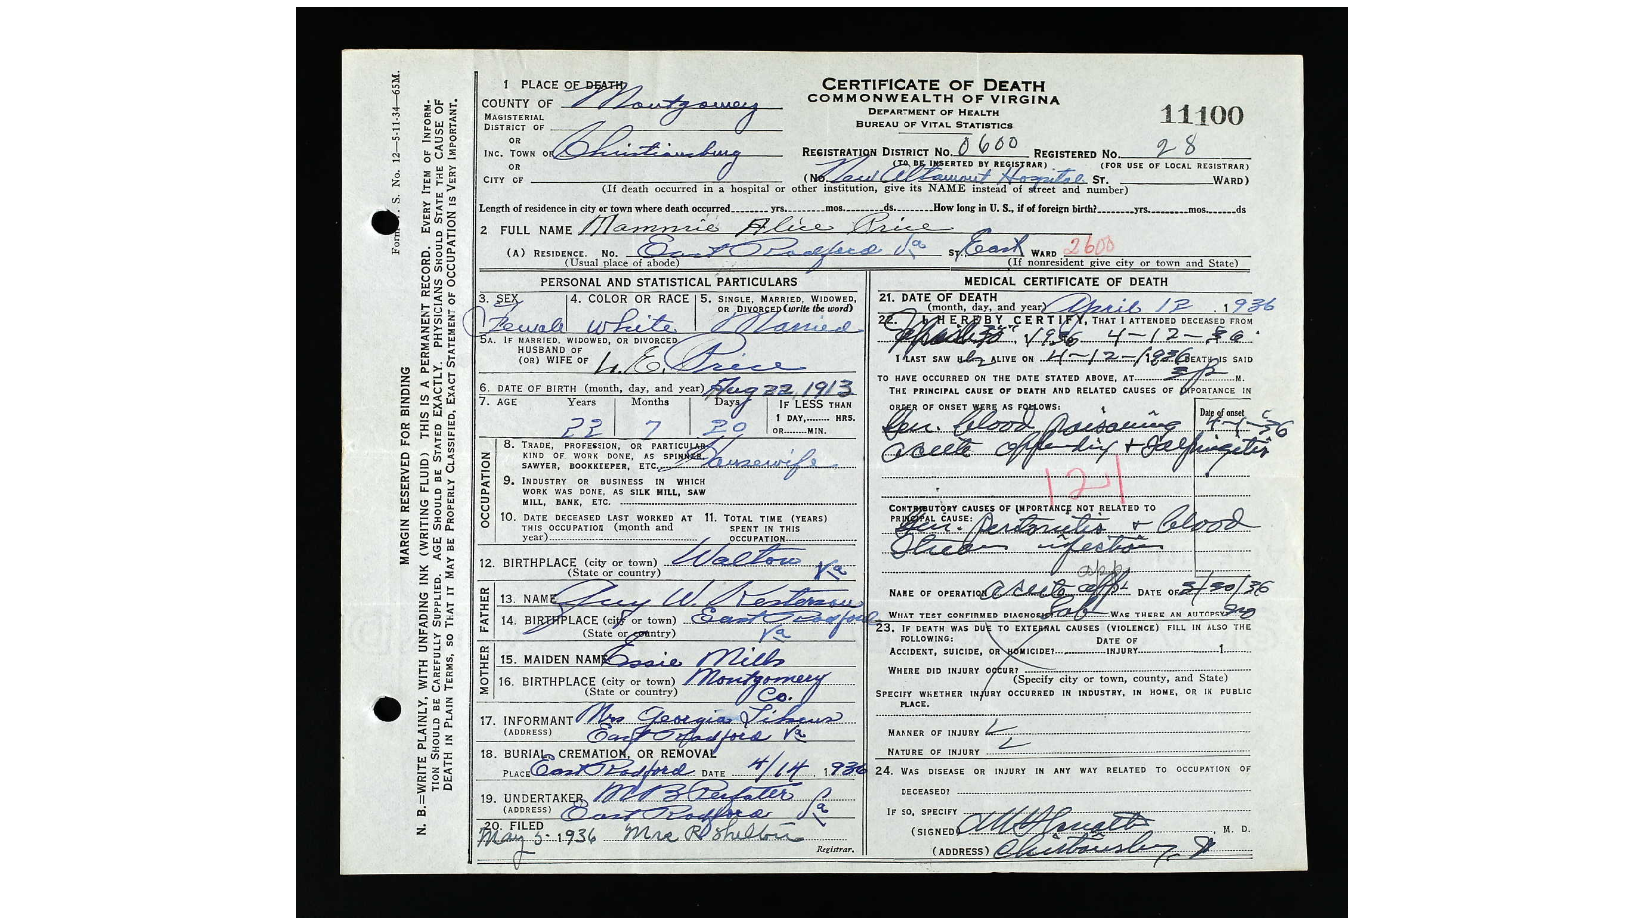 Form V. S. No. 12—5-11-34—65M.
MARGIN RESERVED FOR BINDING
N. B.—WRITE PLAINLY, WITH UNFADING INK (WRITING FLUID) THIS IS A PERMANENT RECORD. EVERY ITEM OF INFORM-
TION SHOULD BE CAREFULLY SUPPLIED. AGE SHOULD BE STATED EXACTLY. PHYSICIANS SHOULD STATE THE CAUSE OF
DEATH IN PLAIN TERMS, SO THAT IT MAY BE PROPERLY CLASSIFIED, EXACT STATEMENT OF OCCUPATION IS VERY IMPORTANT.
1 PLACE OF DEATH
COUNTY OF Montgomery
MAGISTERIAL
DISTRICT OF
OR
INC. TOWN OF Christiansburg
OR
CITY OF
CERTIFICATE OF DEATH
COMMONWEALTH OF VIRGINA
DEPARTMENT OF HEALTH
BUREAU OF VITAL STATISTICS
11100
REGISTRATION DISTRICT NO. 0600 REGISTERED NO. 28
(TO BE INSERTED BY REGISTRAR) (FOR USE OF LOCAL REGISTRAR)
(No. New Altamont Hospital ST. WARD)
(If death occurred in a hospital or other institution, give its NAME instead of street and number)
Length of residence in city or town where death occurred yrs. mos. ds. How long in U. S., if of foreign birth? yrs. mos. ds
2 FULL NAME Mammie Alice Price
(A) RESIDENCE. NO. East Radford Va ST. East WARD 2600
(Usual place of abode) (If nonresident give city or town and State)
PERSONAL AND STATISTICAL PARTICULARS
3. SEX 4. COLOR OR RACE 5. SINGLE, MARRIED, WIDOWED,
OR DIVORCED (write the word)
Female White Married
5A. IF MARRIED, WIDOWED, OR DIVORCED
HUSBAND OF
(OR) WIFE OF E. Price
6. DATE OF BIRTH (month, day, and year) Aug 22, 1913
7. AGE Years Months Days IF LESS THAN
1 DAY, HRS.
22 7 20 OR MIN.
OCCUPATION
8. TRADE, PROFESSION, OR PARTICULAR
KIND OF WORK DONE, AS SPINNER,
SAWYER, BOOKKEEPER, ETC. Housewife
9. INDUSTRY OR BUSINESS IN WHICH
WORK WAS DONE, AS SILK MILL, SAW
MILL, BANK, ETC.
10. DATE DECEASED LAST WORKED AT 11. TOTAL TIME (YEARS)
THIS OCCUPATION (month and SPENT IN THIS
year) OCCUPATION
12. BIRTHPLACE (city or town) Walton
(State or country) Va
FATHER
13. NAME Guy W. Kesterson
14. BIRTHPLACE (city or town) East Radford
(State or country) Va
MOTHER
15. MAIDEN NAME Essie Mills
16. BIRTHPLACE (city or town) Montgomery
(State or country) Co.
17. INFORMANT Mrs Georgia
(ADDRESS) East Radford Va
18. BURIAL, CREMATION, OR REMOVAL
PLACE East Radford DATE 4/14, 1936
19. UNDERTAKER
(ADDRESS) East Radford Va
20. FILED
May 5 1936 Mrs R Shelton
Registrar.
MEDICAL CERTIFICATE OF DEATH
21. DATE OF DEATH
(month, day, and year) April 12, 1936
22. I HEREBY CERTIFY, THAT I ATTENDED DECEASED FROM
1936 4-12-36
I LAST SAW H ALIVE ON 4-12-1936 DEATH IS SAID
TO HAVE OCCURRED ON THE DATE STATED ABOVE, AT 3 P M.
THE PRINCIPAL CAUSE OF DEATH AND RELATED CAUSES OF IMPORTANCE IN
ORDER OF ONSET WERE AS FOLLOWS: Date of onset
Gen. blood poisoning 4-1-36
acute appendix + Salpingitis
121
CONTRIBUTORY CAUSES OF IMPORTANCE NOT RELATED TO
PRINCIPAL CAUSE: Gen. Peritonitis + blood
Stream infection
app
NAME OF OPERATION acute app DATE OF 3/30/36
WHAT TEST CONFIRMED DIAGNOSIS Lab WAS THERE AN AUTOPSY no
23. IF DEATH WAS DUE TO EXTERNAL CAUSES (VIOLENCE) FILL IN ALSO THE
FOLLOWING: DATE OF
ACCIDENT, SUICIDE, OR HOMICIDE? INJURY 1
WHERE DID INJURY OCCUR?
(Specify city or town, county, and State)
SPECIFY WHETHER INJURY OCCURRED IN INDUSTRY, IN HOME, OR IN PUBLIC
PLACE.
MANNER OF INJURY
NATURE OF INJURY
24. WAS DISEASE OR INJURY IN ANY WAY RELATED TO OCCUPATION OF
DECEASED?
IF SO, SPECIFY
(SIGNED) , M. D.
(ADDRESS) Christiansburg